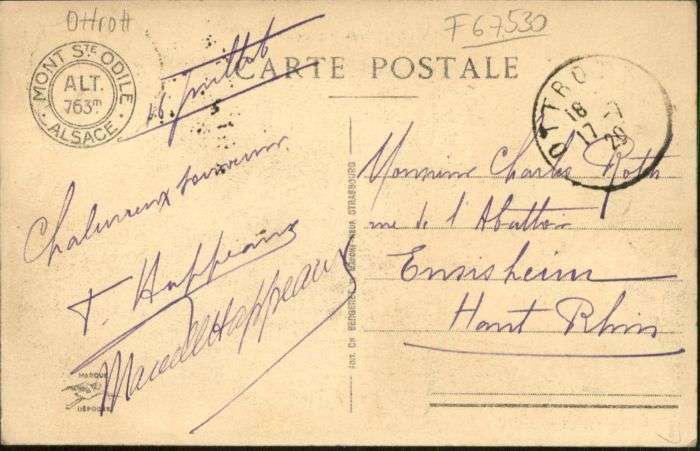 Ottrott
F67530
MONT STE ODILE
ALT.
763m
ALSACE
CARTE POSTALE
16 Juillet
OTTRO
18 7
17 28
Chaleureux souvenir
T. Happeaux
Marcelle Happeaux
Monsieur Charles Roth
rue de l'Abattoir
Ensisheim
Haut Rhin
EDIT. CH. BERGERET STRASBOURG
MARQUE
DÉPOSÉE